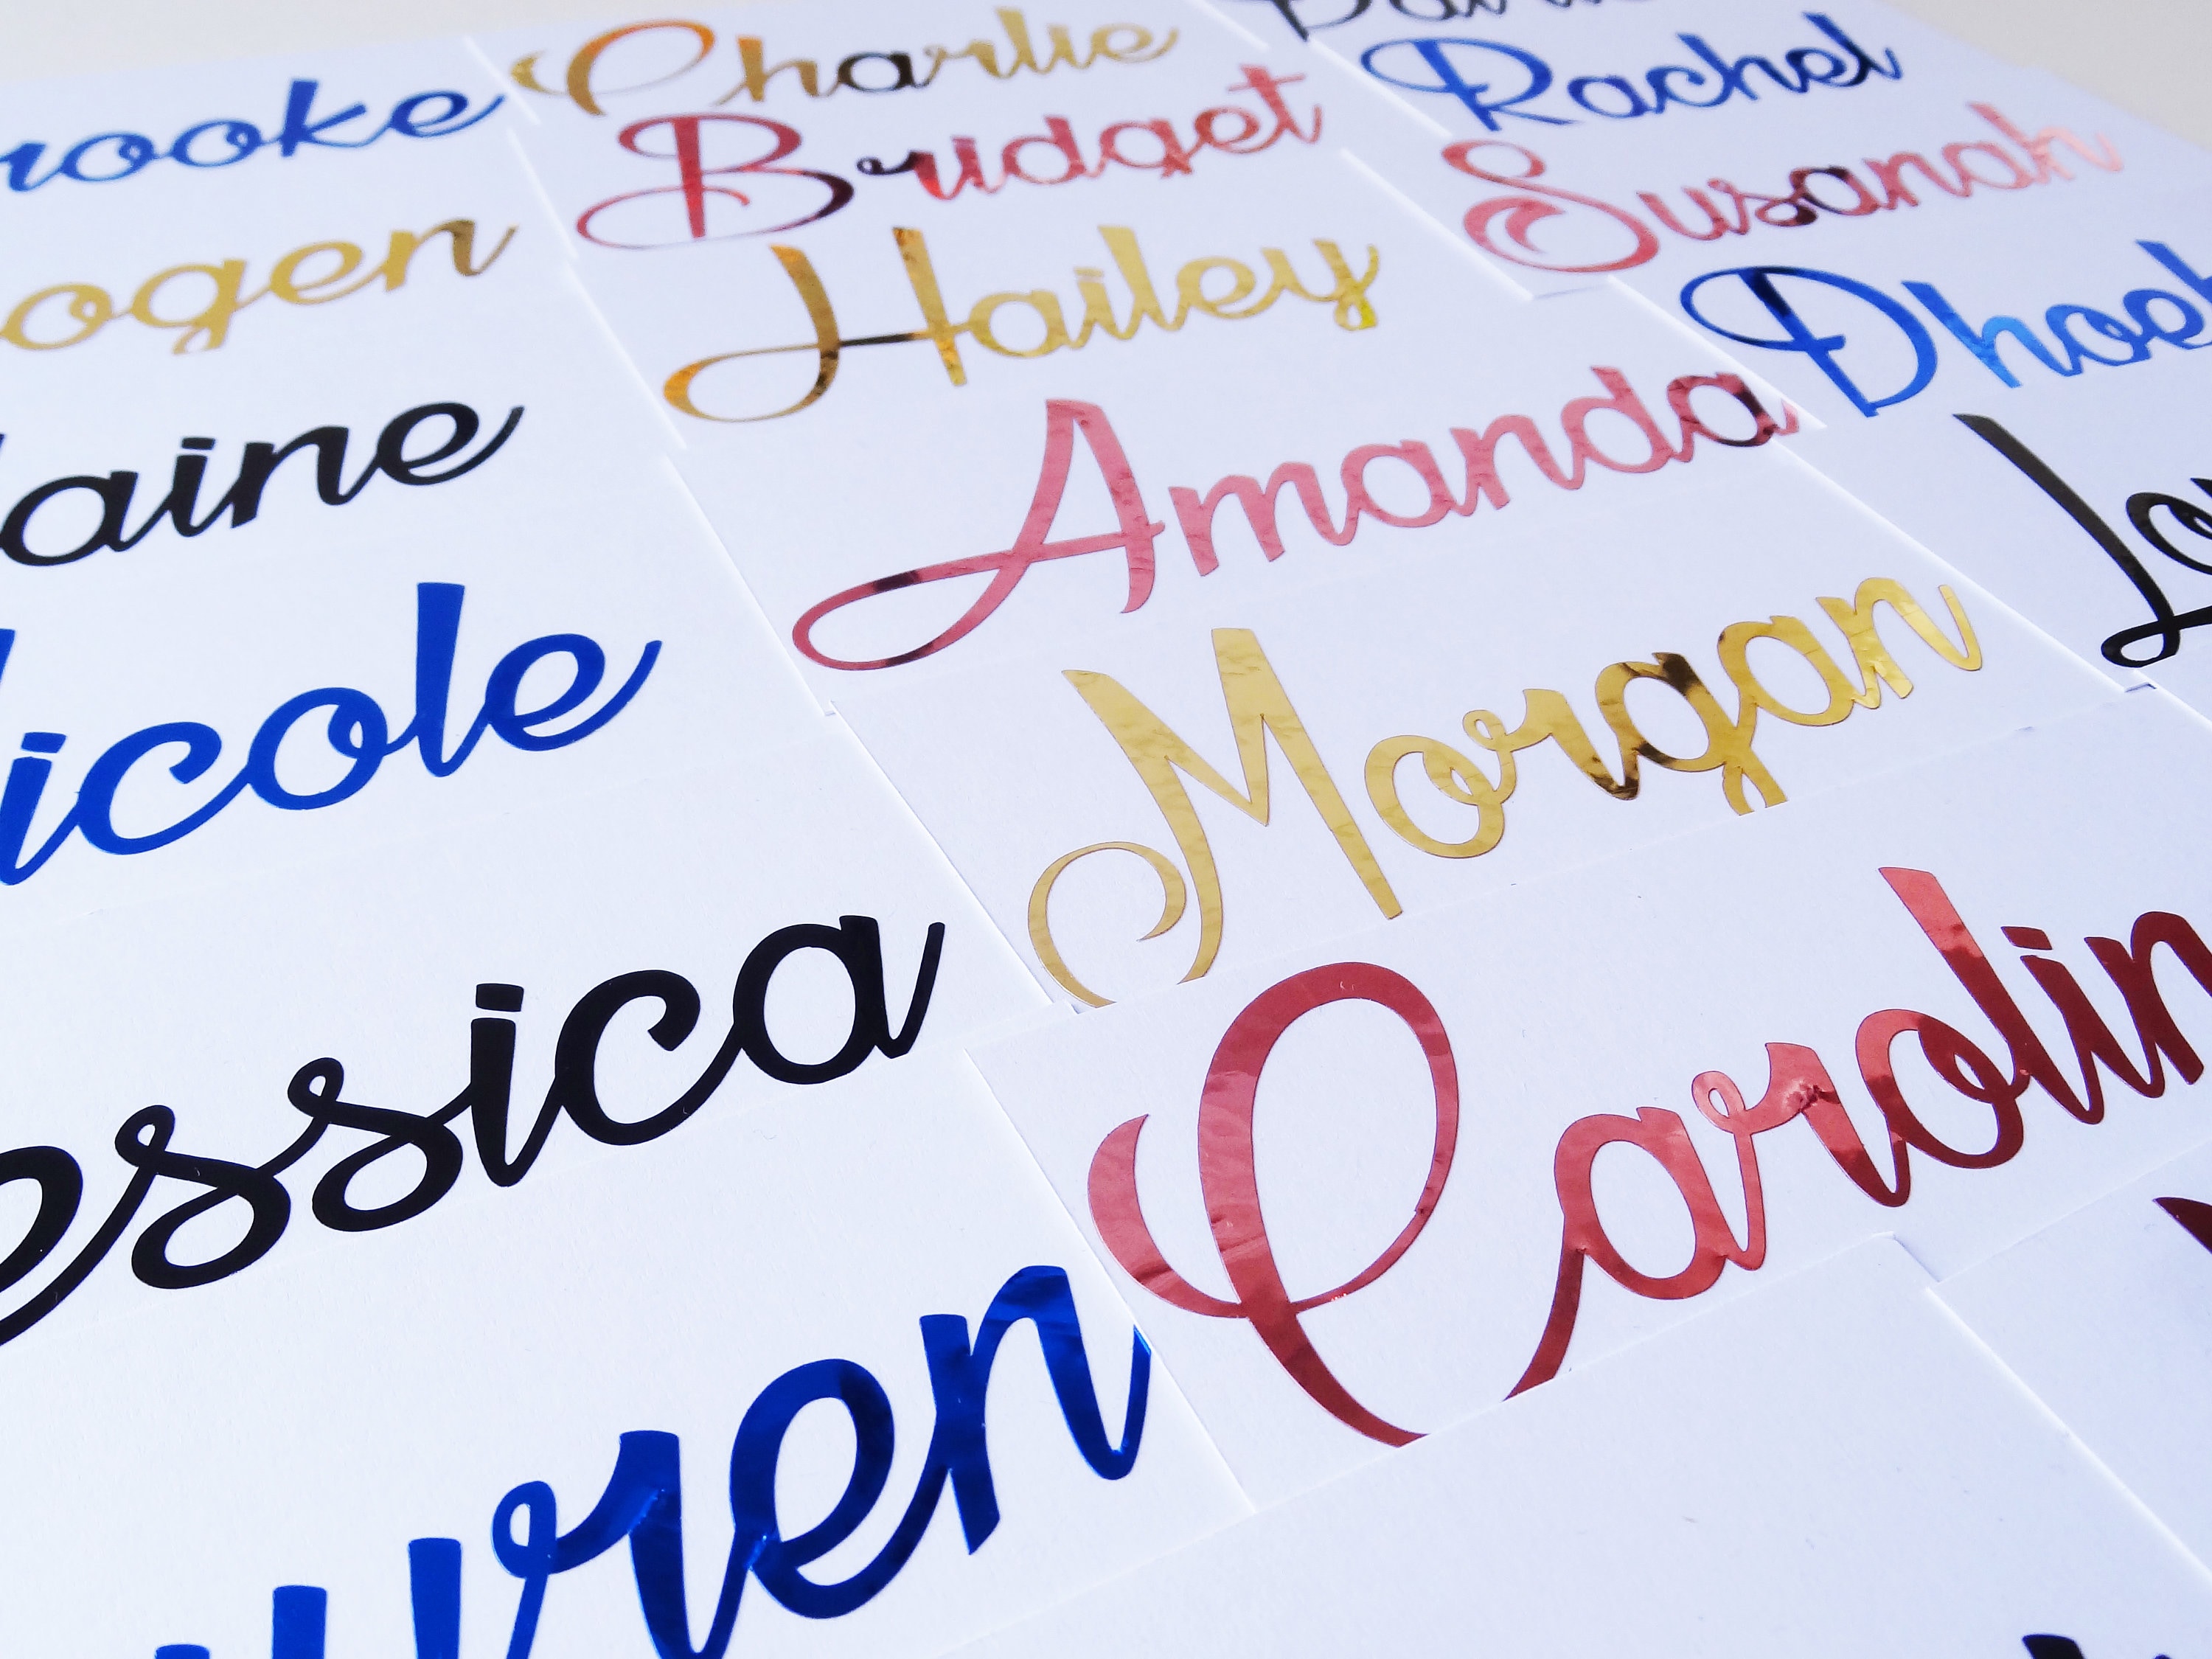 rooke
ogen
aine
icole
essica
uren
Charlie
Bridget
Hailey
Amanda
Morgan
Carolin
Rachel
Susanah
Phoeb